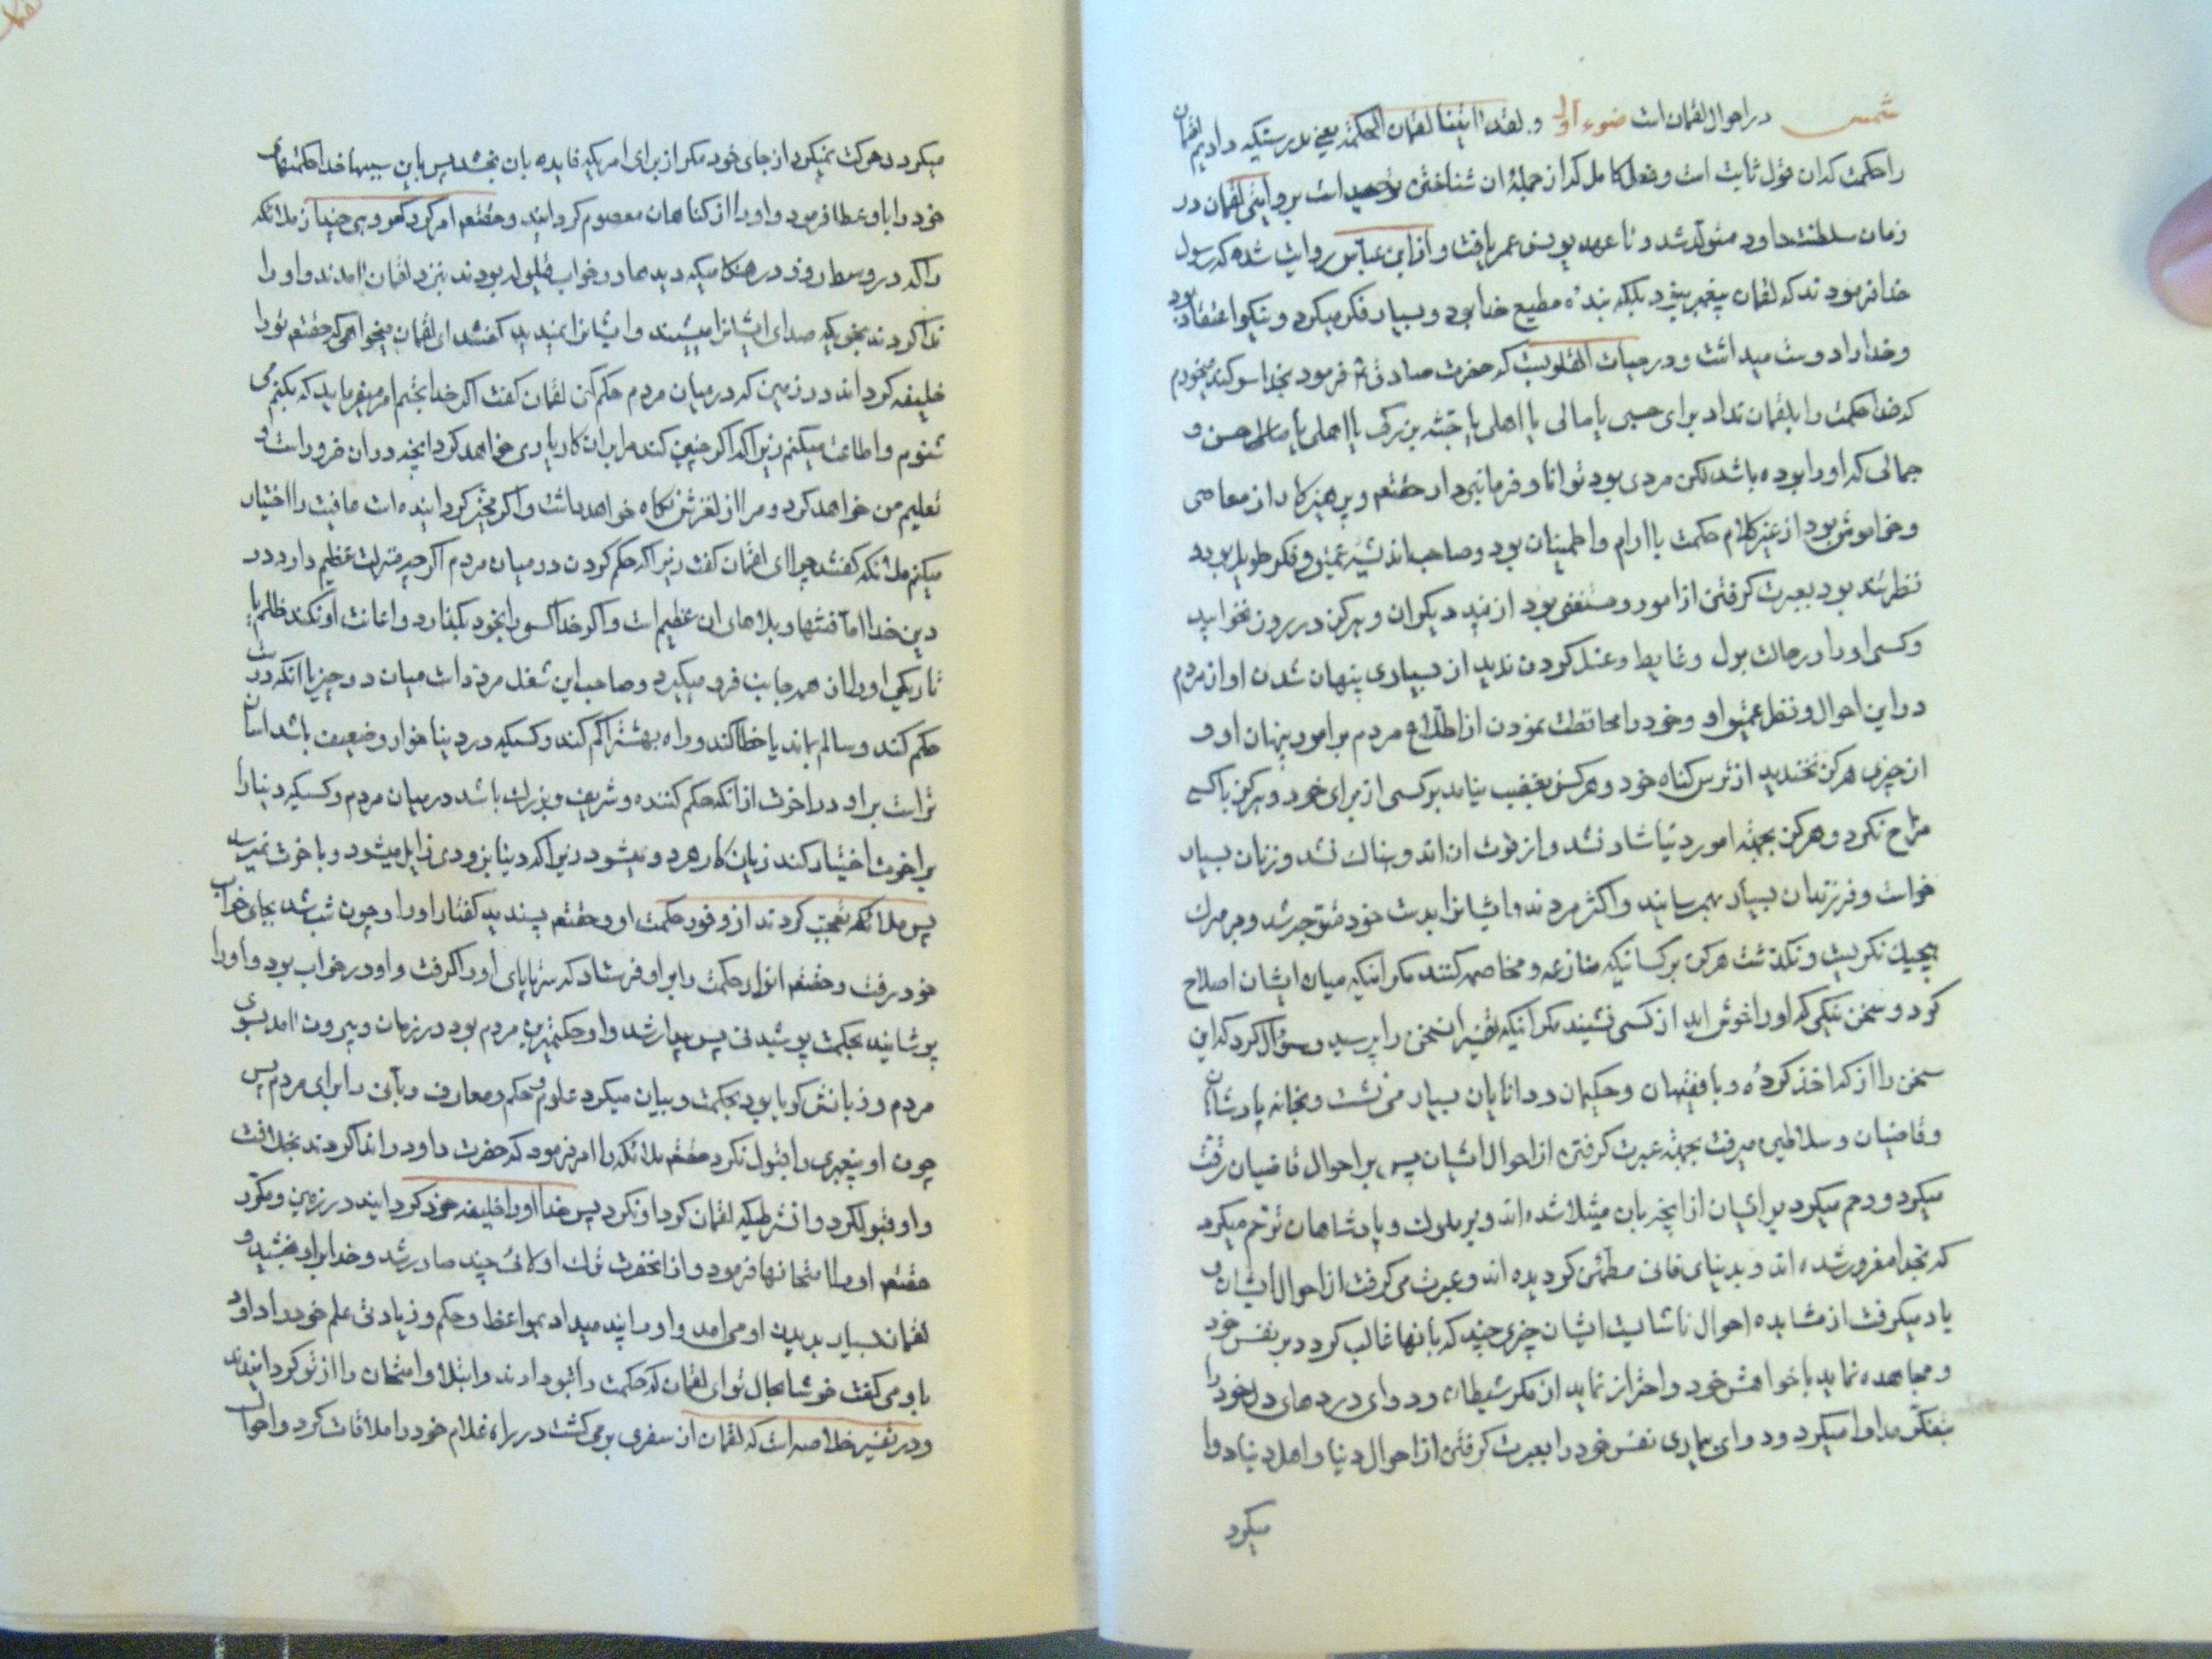 شمس در احوال لقمان است ضوء اول و لقد اتینا لقمان الحکمة یعنی بدرستیکه دادیم لقمان
را حکمت که ان قول ثابت است و فعل کامل که از جمله ان شناختن توحید است بروایتی لقمان در
زمان سلطنت داود متولد شد و تا عهد یونس عمر یافت و از ابن عباس روایت شده که رسول
خدا فرمودند که لقمان پیغمبر نبود بلکه بنده مطیع خدا بود و بسیار فکر میکرد و نیکو اعتقاد بود
و خدا را دوست میداشت و در حیات القلوبست که حضرت صادق فرمود بخدا سوگند میخورم
که خدا حکمت را بلقمان نداد برای حسبی یا مالی یا اهلی یا جثه بزرگ یا حسن و
جمالی که او را بوده باشد لکن مردی بود توانا و فرمانبردار حقتعم و پرهیزکار از معاصی
و خاموش بود از غیر کلام حکمت با ارام و اطمینان بود و صاحب اندیشه عمیق و فکر طویل بود
نظر تند بود بعبرت گرفتن از امور و مستغنی بود از پند دیگران و هرگز در روز نخوابید
و کسی او را در حالت بول و غایط و غسل کردن ندید از بسیاری پنهان شدن او از مردم
در این احوال و نظر عمیق او و خود را محافظت نمودن از اطلاع مردم بر امور پنهان او و
از چیزی هرگز نخندید از ترس گناه خود و هرگز بغضب نیامد بر کسی از برای خود و هرگز با کسی
مزاح نکرد و هرگز بجهة امور دنیا شاد نشد و از فوت ان اندوهناک نشد و زنان بسیار
خواست و فرزندان بسیار بهمرسانید و اکثر مردند و ایشانرا بدست خود متوجه شد و بر مرگ
هیچیک نگریست و نگذشت هرگز بر کسانیکه منازعه و مخاصمه کنند مگر اینکه میان ایشان اصلاح
کرد و سخن نیکی که او را خوش اید از کسی نشنید مگر انیکه تفسیر ان سخن را پرسید و سؤال کرد که این
سخن را از که اخذ کرده و با فقیهان و حکیمان و دانایان بسیار می نشست و بخانه پادشاهان
و قاضیان و سلاطین میرفت بجهة عبرت گرفتن از احوال ایشان پس بر احوال قاضیان رقت
میکرد و رحم میکرد برایشان از انچه بان مبتلا شده اند و بر ملوک و پادشاهان ترحم میکرد
که بخدا مغرور شده اند و بدنیای فانی مطمئن گردیده اند و عبرت می گرفت از احوال ایشان و
یاد میگرفت از مشاهده احوال ناشایست ایشان چیزی چند که بانها غالب گردد بر نفس خود
و مجاهده نماید با خواهش خود و احتراز نماید از مکر شیطان و دوای دردهای دل خود را
بتفکر مداوا میکرد و دوای بیماری نفس خود را بعبرت گرفتن از احوال دنیا و اهل دنیا دوا
میکرد
میکرد و حرکت نمیکرد از جای خود مگر از برای امریکه فایده بان بخشد پس باین سببها خدا حکمتهای
خود را باو عطا فرمود و او را از گناهان معصوم گردانید و حقتعم امر کرد گروهی چند از ملائکه
را که در وسط روز در هنگامیکه دیدها در خواب قیلوله بودند بنزد لقمان امدند و او را
ندا کردند بنحویکه صدای ایشانرا میشنید و ایشانرا نمیدید گفتند ای لقمان میخواهی که حقتعم تو را
خلیفه گرداند در زمین که در میان مردم حکم کنی لقمان گفت اگر خدا بحتم امر میفرماید که بکنم می
شنوم و اطاعت میکنم زیرا که اگر چنین کند مرا بران کار یاری خواهد کرد و انچه در ان ضرور است و
تعلیم من خواهد کرد و مرا از لغزش نگاه خواهد داشت و اگر مخیر گردانیده است عافیت را اختیار
میکنم ملائکه گفتند چرا ای لقمان گفت زیرا که حکم کردن در میان مردم اگر چه منزلت عظیم دارد در
دین خدا اما فتنها و بلاهای ان عظیم است و اگر خدا کسی را بخود بگذارد و اعانت او نکند ظلم یا
تاریکی او را از همه جانب فرو میگیرد و صاحب این شغل مردد است میان دو چیز یا انکه درست
حکم کند و سالم بماند یا خطا کند و راه بهشت را گم کند و کسیکه در دنیا خوار و ضعیف باشد اسان
تر است بر او در اخرت از انکه حکم کننده و شریف و بزرگ باشد در میان مردم و کسیکه دنیا را
بر اخرت اختیار کند زیان کار هر دو میشود زیرا که دنیا بزودی زایل میشود و باخرت نمیرسد
پس ملائکه تعجب کردند از وفور حکمت او و حقتعم پسندید گفتار او را و چون شب شد بجای خواب
خود رفت و حقتعم انوار حکمت را بر او فرستاد که سر تا پای او را گرفت و او در خواب بود و او را
پوشانید بحکمت پوشیدنی پس بیدار شد و او حکیمترین مردم بود در زمان و بیرون امد بسوی
مردم و زبانش گویا بود بحکمت و بیان میکرد علوم و حکم و معارف ربانی را برای مردم پس
چون او پیغمبری را قبول نکرد حقتعم ملائکه را امر فرمود که حضرت داود را ندا کردند بخلافت
و او قبول کرد و ان شرطیکه لقمان کرد او نکرد پس خدا او را خلیفه خود گردانید در زمین و مکرر
حقتعم او را امتحانها فرمود و از انحضرت ترک اولائی چند صادر شد و خدا بر او بخشید و
لقمان بسیار بدیدن او می امد و او را پند میداد بمواعظ و حکم و زیادتی علم خود را داود
باو می گفت خوشا بحال تو ای لقمان که حکمت را بتو دادند و ابتلا و امتحان را از تو گردانیدند
و در تفسیر خلاصه است که لقمان از سفری برمی گشت در راه غلام خود را ملاقات کرد و احوال